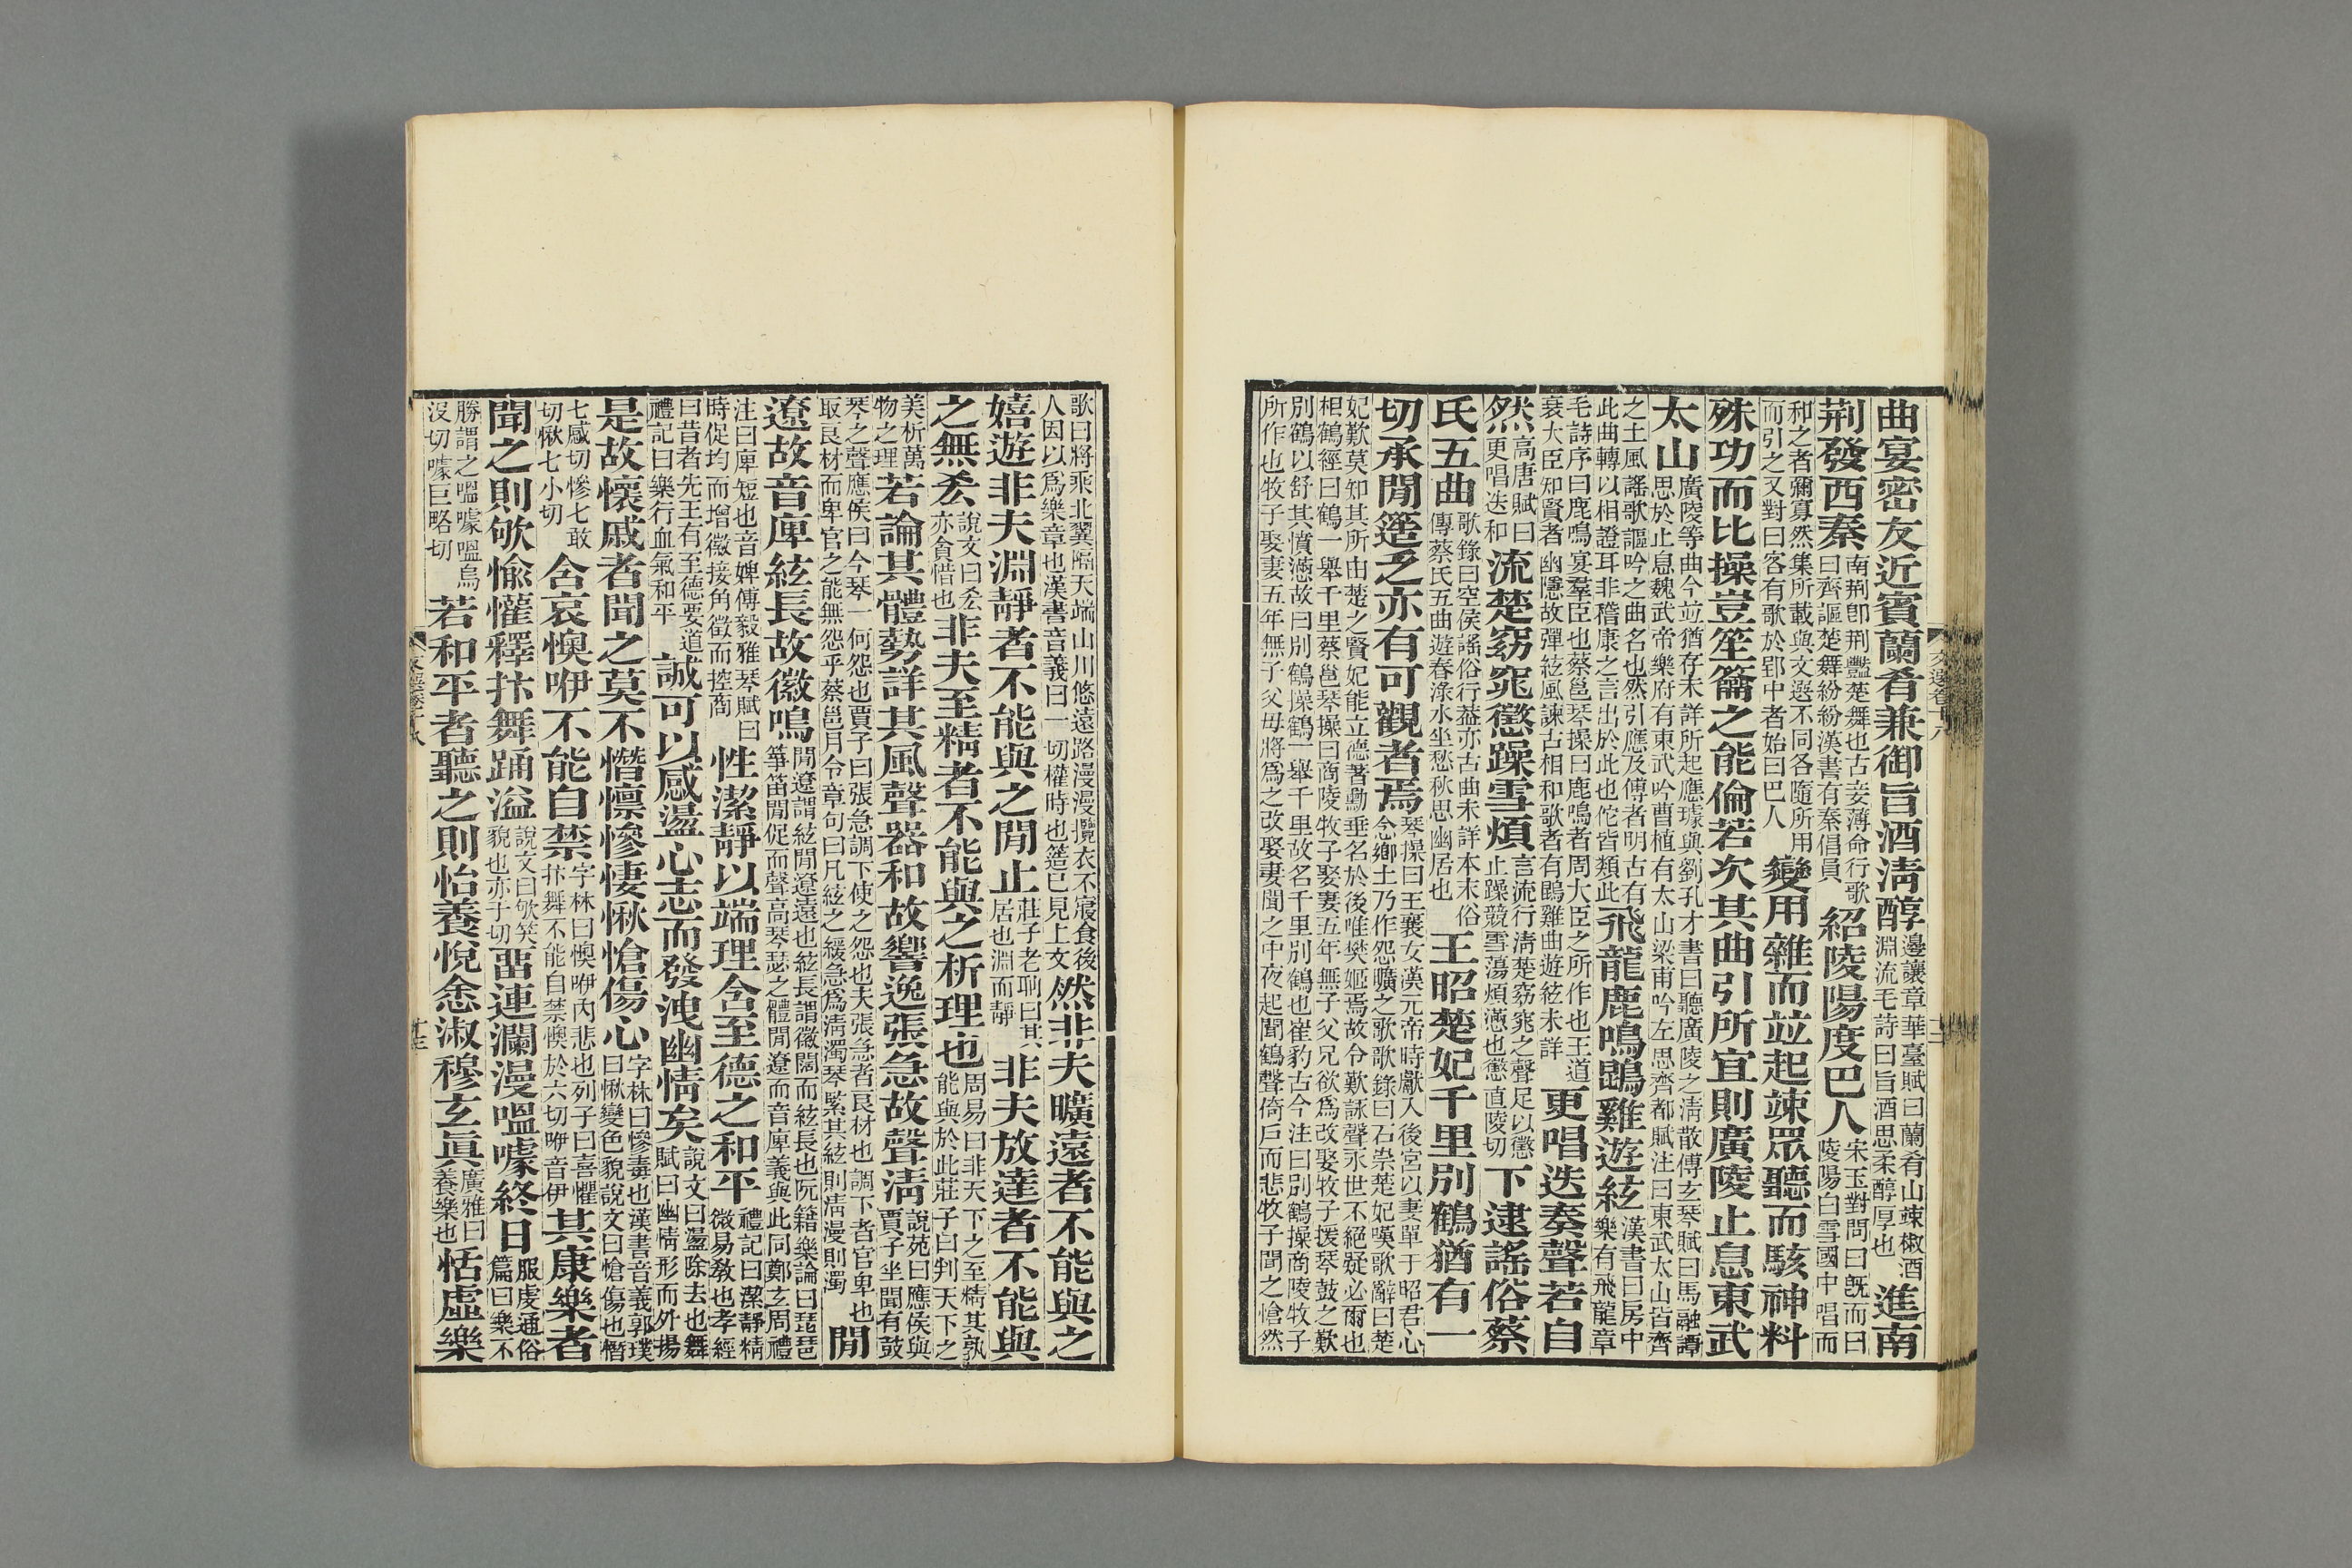 曲宴密友近賓蘭肴兼御旨酒淸醇邊讓章華臺賦曰蘭肴山竦椒酒淵流毛詩曰旨酒思柔醇厚也進南
荆發西秦南荆卽荆豔楚舞也古妾薄命行歌曰齊謳楚舞紛紛漢書有秦倡員紹陵陽度巴人宋玉對問曰旣而曰陵陽白雪國中唱而
和之者彌寡然集所載與文選不同各隨所用而引之又對曰客有歌於郢中者始曰巴人變用雜而竝起竦眾聽而駭神料
殊功而比操豈笙籥之能倫若次其曲引所宜則廣陵止息東武
太山廣陵等曲今竝猶存未詳所起應璩與劉孔才書曰聽廣陵之淸散傅玄琴賦曰馬融譚思於止息魏武帝樂府有東武吟曹植有太山梁甫吟左思齊都賦注曰東武太山皆齊
之土風謠歌謳吟之曲名也然引應及傅者明古有此曲轉以相證耳非嵇康之言出於此也佗皆類此飛龍鹿鳴鵾雞遊絃漢書曰房中樂有飛龍章
毛詩序曰鹿鳴宴羣臣也蔡邕琴操曰鹿鳴者周大臣之所作也王道衰大臣知賢者幽隱故彈絃風諫古相和歌者有鵾雞曲遊絃未詳更唱迭奏聲若自
然高唐賦曰更唱迭和流楚窈窕懲躁雪煩言流行淸楚窈窕之聲足以懲止躁競雪蕩煩懣也懲直陵切下逮謠俗蔡
氏五曲歌錄曰空侯謠俗行葢亦古曲未詳本末俗傳蔡氏五曲遊春淥水坐愁秋思幽居也王昭楚妃千里別鶴猶有一
切承閒簉乏亦有可觀者焉琴操曰王襄女漢元帝時獻入後宮以妻單于昭君心念鄉土乃作怨曠之歌歌錄曰石崇楚妃嘆歌辭曰楚
妃歎莫知其所由楚之賢妃能立德著勳垂名於後唯樊姬焉故令歎詠聲永世不絕疑必爾也相鶴經曰鶴一舉千里蔡邕琴操曰商陵牧子娶妻五年無子父兄欲爲改娶牧子援琴鼓之歎
別鶴以舒其憤懣故曰別鶴操鶴一舉千里故名千里別鶴也崔豹古今注曰別鶴操商陵牧子所作也牧子娶妻五年無子父毋將爲之改娶妻聞之中夜起聞鶴聲倚戶而悲牧子聞之愴然
歌曰將乖北翼隔天端山川悠遠路漫漫攬衣不寢食後人因以爲樂章也漢書音義曰一切權時也簉已見上文然非夫曠遠者不能與之
嬉遊非夫淵靜者不能與之閒止莊子老聃曰其居也淵而靜非夫放達者不能與
之無吝說文曰吝亦貪惜也非夫至精者不能與之析理也周易曰非天下之至精其孰能與於此莊子曰判天下之
美析萬物之理若論其體勢詳其風聲器和故響逸張急故聲淸說苑曰應侯與賈子坐聞有鼓
琴之聲應侯曰今琴一何怨也賈子曰張急調下使之怨也夫張急者良材也調下者官卑也取良材而卑官之能無怨乎蔡邕月令章句曰凡絃之緩急爲淸濁琴緊其絃則淸漫則濁閒
遼故音庳絃長故徽鳴閒遼謂絃閒遼遠也絃長謂徽闊而絃長也阮籍樂論曰琵琶箏笛閒促而聲高琴瑟之體閒遼而音庳義與此同鄭玄周禮
注曰庳短也音婢傅毅雅琴賦曰時促均而增徽接角徵而控商性潔靜以端理含至德之和平禮記曰潔靜精微易敎也孝經
曰昔者先王有至德要道禮記曰樂行血氣和平誠可以感盪心志而發洩幽情矣說文曰盪除去也舞賦曰幽情形而外揚
是故懷戚者聞之莫不憯懍慘悽愀愴傷心字林曰慘毒也漢書音義郭璞曰愀變色貌說文曰愴傷也憯
七感切慘七敢切愀七小切含哀懊咿不能自禁字林曰懊咿內悲也列子曰喜懼抃舞不能自禁懊於六切咿音伊其康樂者
聞之則欨愉懽釋抃舞踊溢說文曰欨笑貌也亦于切畱連瀾漫嗢噱終日服虔通俗篇曰樂不
勝謂之嗢噱嗢烏沒切噱巨略切若和平者聽之則怡養悅悆淑穆玄眞廣雅曰養樂也恬虛樂